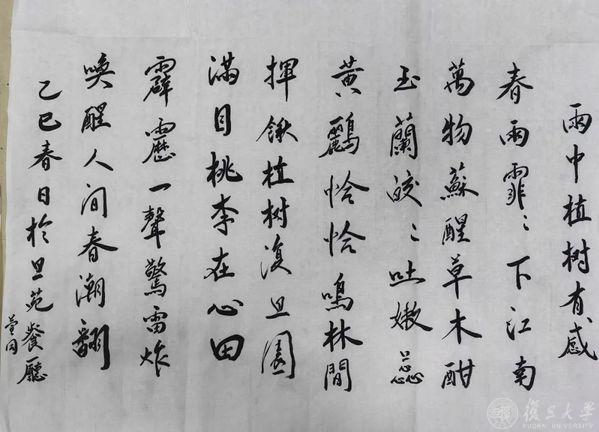 雨中植树有感
春雨霏〻下江南
萬物蘇醒草木酣
玉蘭皎〻吐嫩蕊
黃鸝恰恰鳴林間
揮鍬植树復旦園
滿目桃李在心田
霹靂一聲驚雷炸
喚醒人间春潮翻
乙巳春日於旦苑餐廳
復旦大學
FUDAN UNIVERSITY